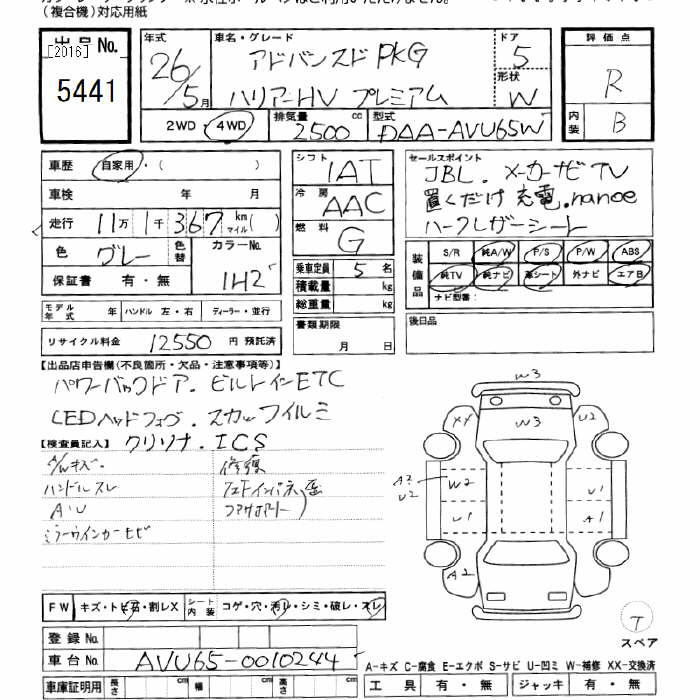 (複合機)対応用紙
出品No.
[2016]
5441
年式
26/5月
車名・グレード
アドバンスドPKG
ハリアーHV プレミアム
ドア
5
形状
W
評価点
R
内装
B
2WD・4WD
排気量
2500
cc
型式
DAA-AVU65W
車歴
自家用・( )
車検
年 月
走行
11万 1千 367 kmマイル( )
色
グレー
色替
カラーNo.
1H2
保証書
有・無
モデル年式
年
ハンドル 左・右
ディーラー・並行
リサイクル料金
12550 円 預託済
シフト
IAT
冷房
AAC
燃料
G
乗車定員
5 名
積載量
kg
総重量
kg
書類期限
月 日
セールスポイント
JBL. メーカーナビTV
置くだけ充電.nanoe
ハーフレザーシート
装備品
S/R
純A/W
P/S
P/W
ABS
純TV
純ナビ
革シート
外ナビ
エアB
ナビ型番:
後日品
【出品店申告欄(不良箇所・欠品・注意事項等)】
パワーバックドア. ビルトインETC
LEDヘッドフォグ. スカッフイルミ
【検査員記入】
クリソナ. ICS
A/Wキズ.
ハンドルスレ
A・U
ミラーウインカーヒビ
修復
W3
W3
XX
U2
A2
U2
W2
U1
U1
A1
A2
T
スペア
FW
キズ・トビ石・割レX
シート内装
コゲ・穴・汚レ・シミ・破レ・スレ
登録No.
車台No.
AVU65-0010244
車庫証明用
長さ
cm
幅
cm
高さ
cm
A-キズ C-腐食 E-エクボ S-サビ U-凹ミ W-補修 XX-交換済
工具 有・無
ジャッキ 有・無